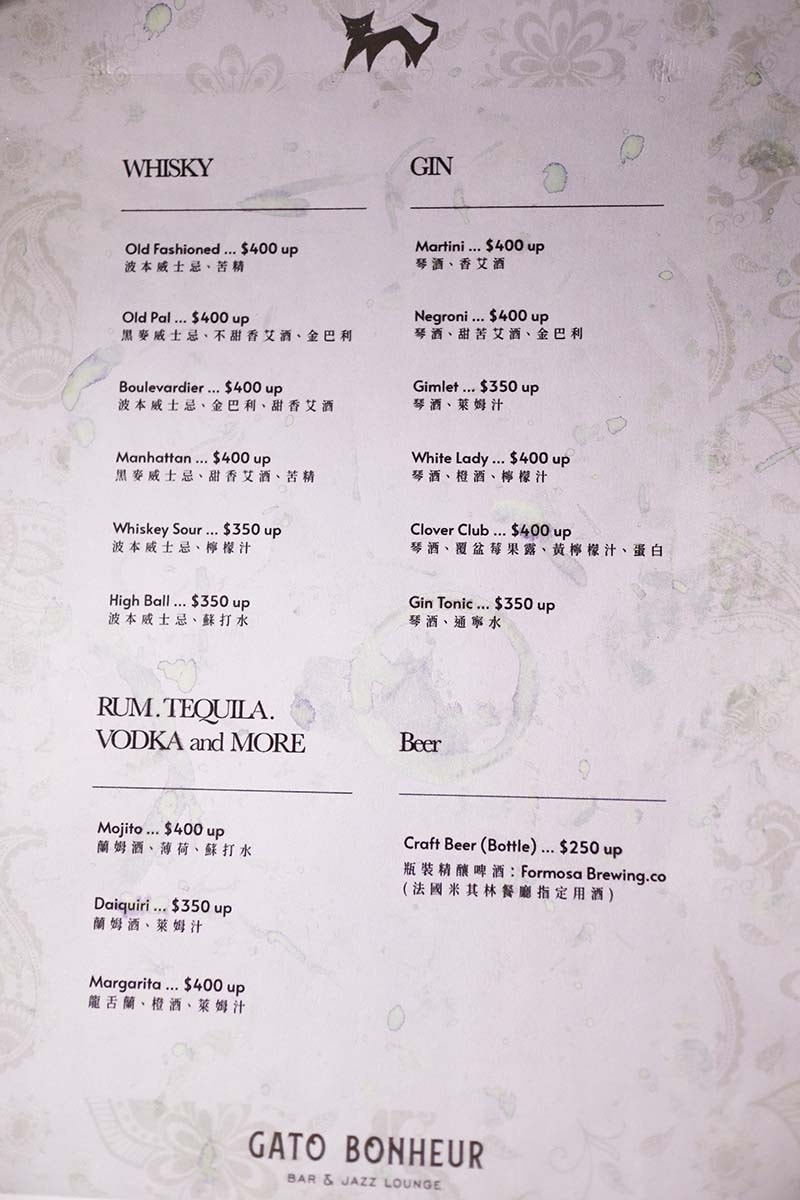 WHISKY
Old Fashioned ... $400 up
波本威士忌、苦精
Old Pal ... $400 up
黑麥威士忌、不甜香艾酒、金巴利
Boulevardier ... $400 up
波本威士忌、金巴利、甜香艾酒
Manhattan ... $400 up
黑麥威士忌、甜香艾酒、苦精
Whiskey Sour ... $350 up
波本威士忌、檸檬汁
High Ball ... $350 up
波本威士忌、蘇打水
GIN
Martini ... $400 up
琴酒、香艾酒
Negroni ... $400 up
琴酒、甜苦艾酒、金巴利
Gimlet ... $350 up
琴酒、萊姆汁
White Lady ... $400 up
琴酒、橙酒、檸檬汁
Clover Club ... $400 up
琴酒、覆盆莓果露、黃檸檬汁、蛋白
Gin Tonic ... $350 up
琴酒、通寧水
RUM . TEQUILA .
VODKA and MORE
Mojito ... $400 up
蘭姆酒、薄荷、蘇打水
Daiquiri ... $350 up
蘭姆酒、萊姆汁
Margarita ... $400 up
龍舌蘭、橙酒、萊姆汁
Beer
Craft Beer (Bottle) ... $250 up
瓶裝精釀啤酒：Formosa Brewing.co
(法國米其林餐廳指定用酒)
GATO BONHEUR
BAR & JAZZ LOUNGE